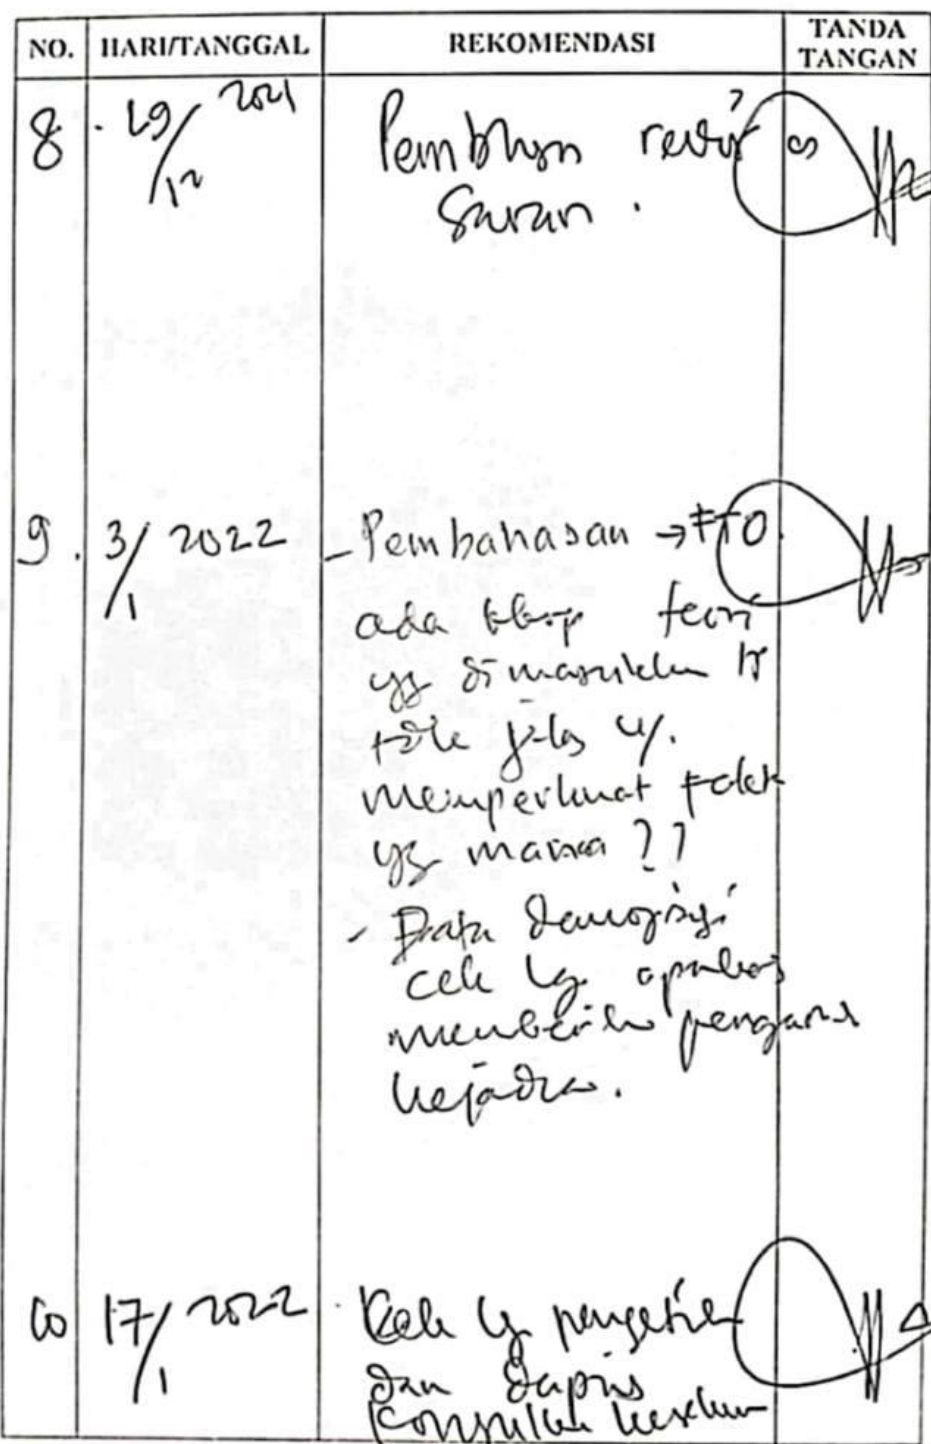 NO. HARI/TANGGAL REKOMENDASI TANDA TANGAN
8. 29/12 2021 Pembhsn revisi
Saran.
9. 3/1 2022 - Pembahasan → FTO
ada bbrp teori
yg dimasukkan
tdk jelas u/.
memperkuat
yg mana??
- Data demografi
cek lg apakah
memberikn pengaruh
kejadian.
10 17/1 2022 Cek lg pengetikn
dan dapus